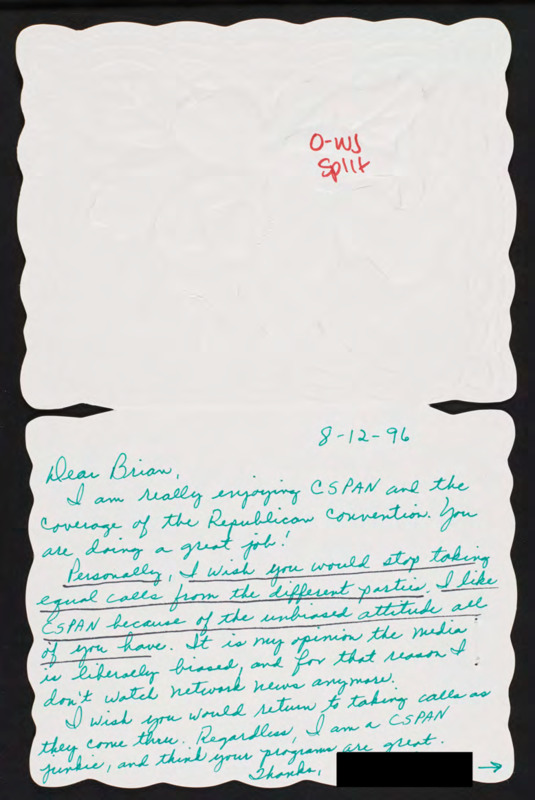 O-WS
Split
8-12-96
Dear Brian,
I am really enjoying CSPAN and the
coverage of the Republican Convention. You
are doing a great job!
Personally, I wish you would stop taking
equal calls from the different parties. I like
CSPAN because of the unbiased attitude all
of you have. It is my opinion the media
is liberally biased, and for that reason I
don't watch network news anymore.
I wish you would return to taking calls as
they come thru. Regardless, I am a CSPAN
junkie, and think your programs are great.
Thanks, →